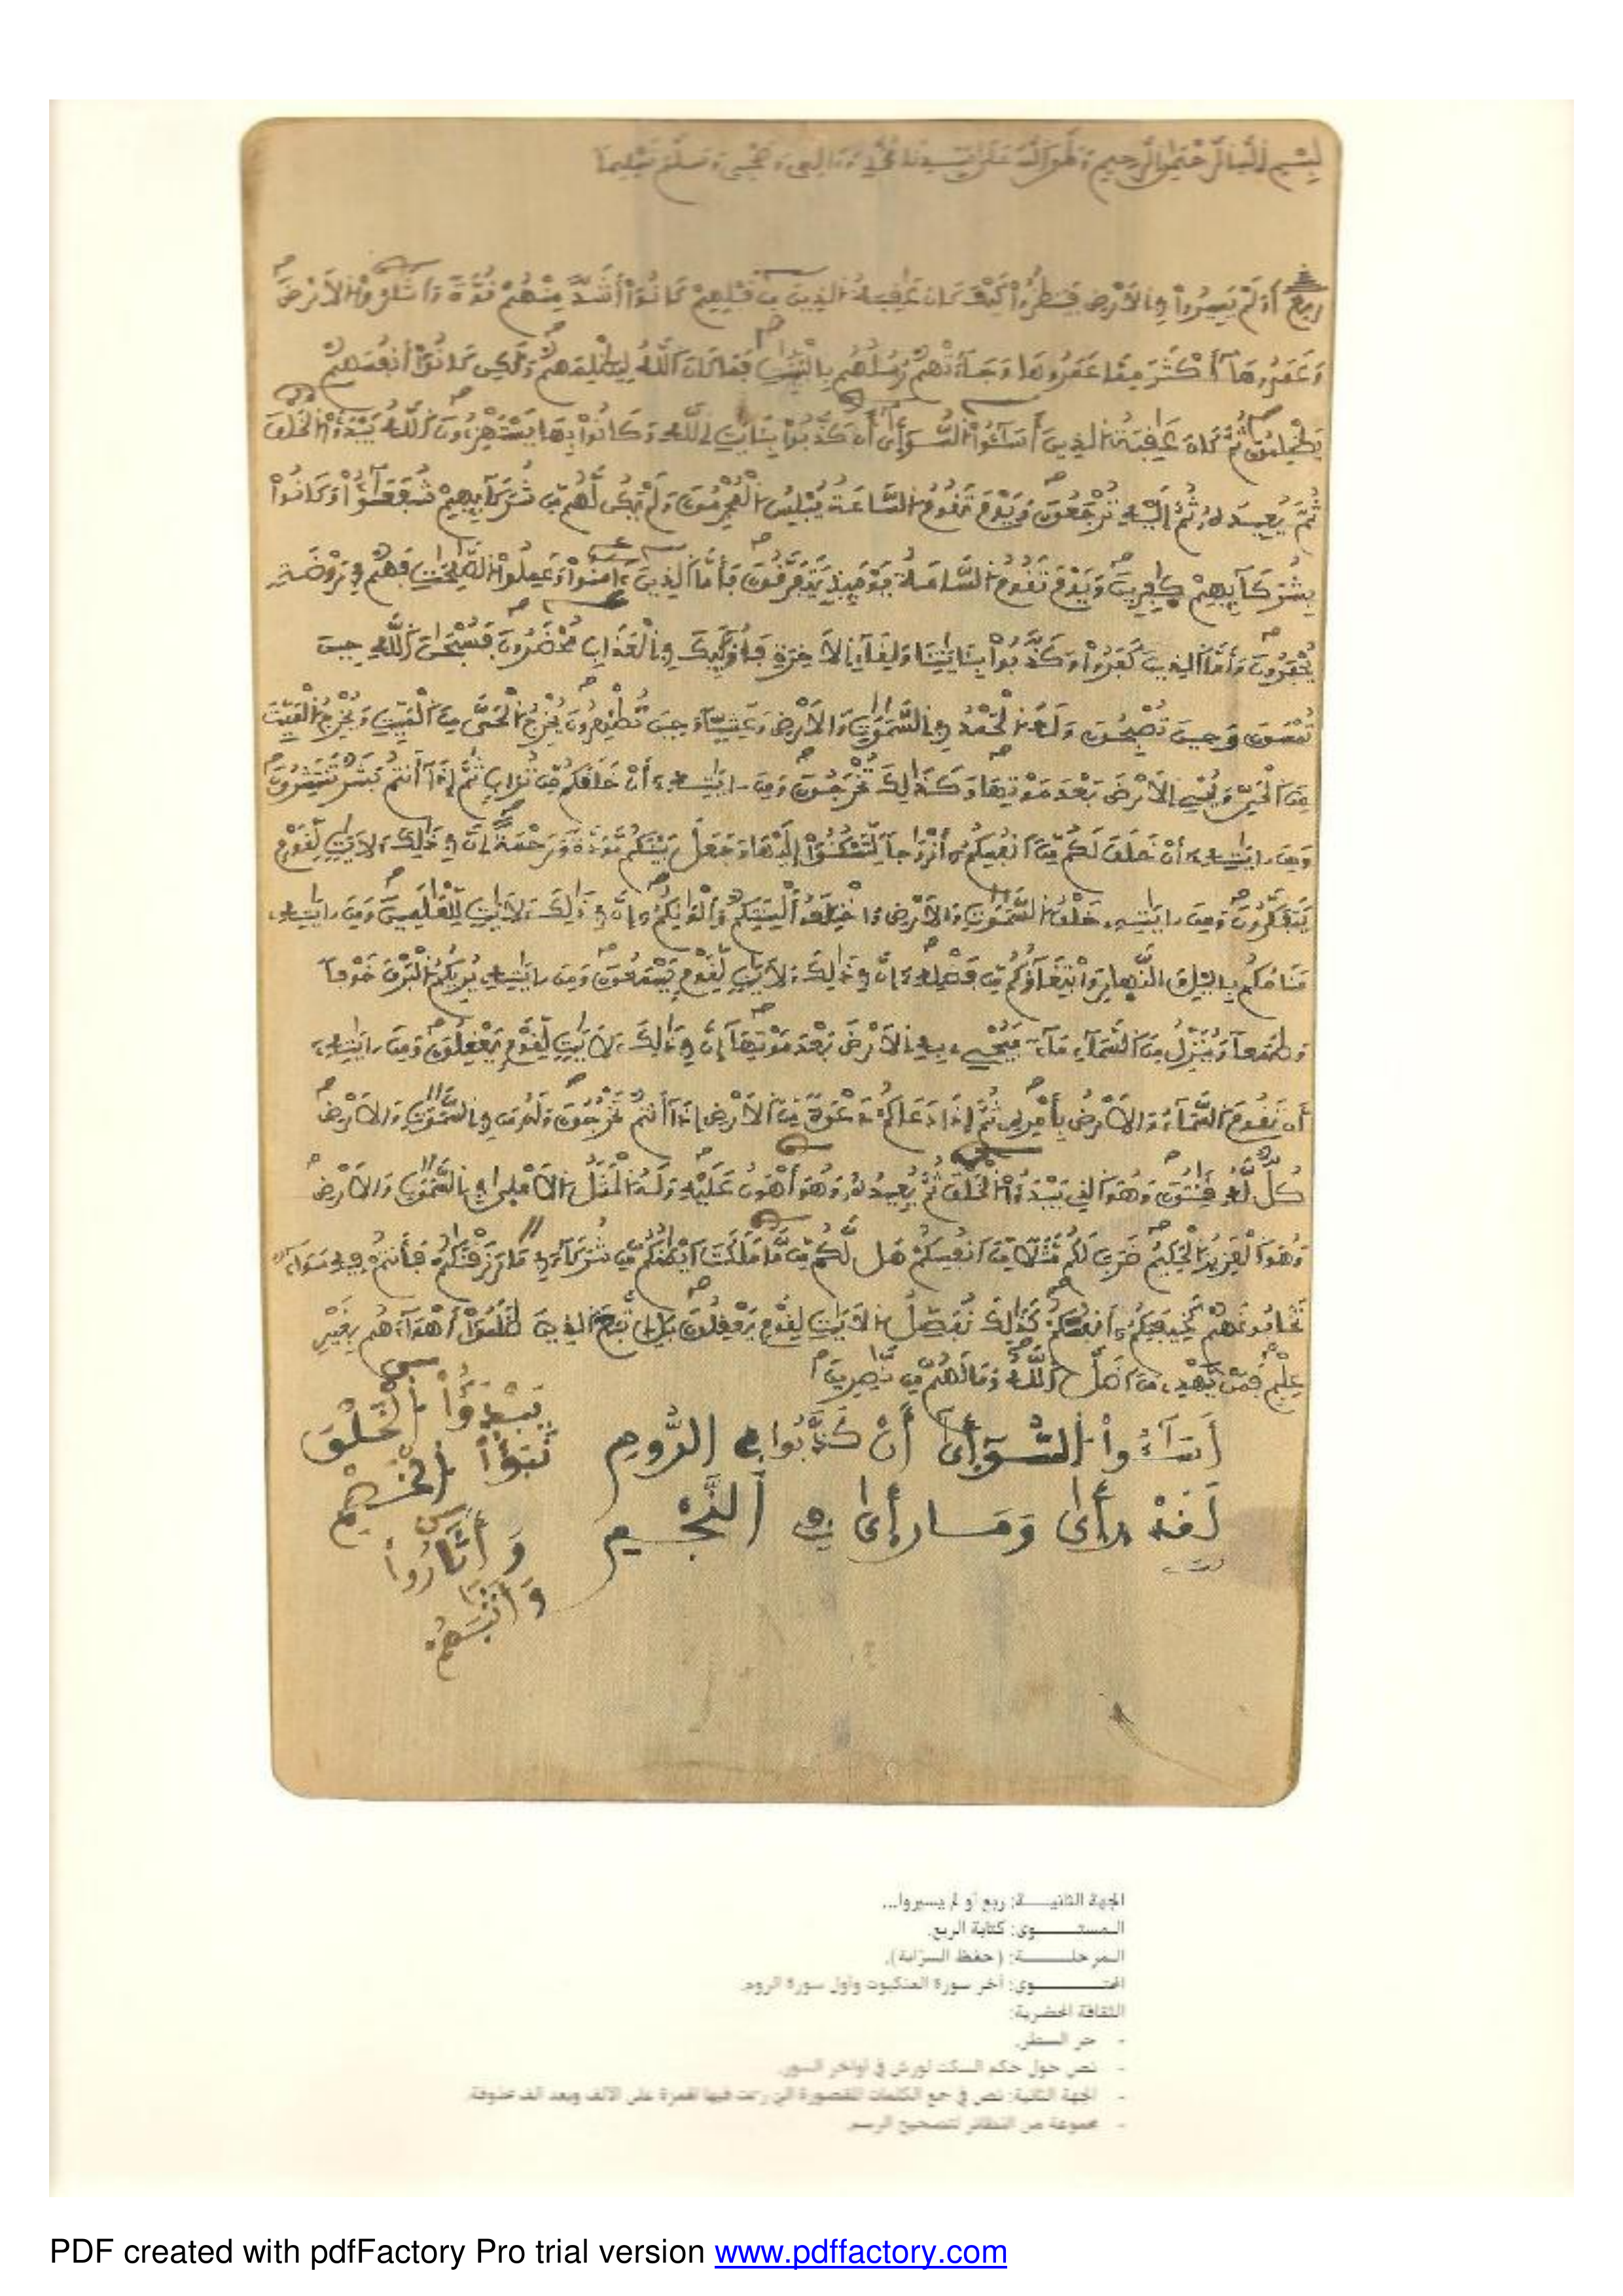 بِسْمِ اللَّهِ الرَّحْمَٰنِ الرَّحِيمِ وَصَلَّى اللَّهُ عَلَىٰ سَيِّدِنَا مُحَمَّدٍ وَءَالِهِ وَصَحْبِهِ وَسَلَّمَ تَسْلِيماً
ربع أَوَلَمْ يَسِيرُواْ فِي الْأَرْضِ فَيَنظُرُواْ كَيْفَ كَانَ عَٰقِبَةُ الذِينَ مِن قَبْلِهِمْ كَانُوٓاْ أَشَدَّ مِنْهُمْ قُوَّةً وَأَثَارُواْ الْأَرْضَ
وَعَمَرُوهَآ أَكْثَرَ مِمَّا عَمَرُوهَا وَجَآءَتْهُمْ رُسُلُهُم بِالْبَيِّنَٰتِ فَمَا كَانَ اللَّهُ لِيَظْلِمَهُمْ وَلَٰكِن كَانُوٓاْ أَنفُسَهُمْ
يَظْلِمُونَ ثُمَّ كَانَ عَٰقِبَةُ الذِينَ أَسَٰٓـُٔواْ السُّوٓأَىٰٓ أَن كَذَّبُواْ بِـَٔايَٰتِ اللَّهِ وَكَانُواْ بِهَا يَسْتَهْزِءُونَ اللَّهُ يَبْدَؤُاْ الْخَلْقَ
ثُمَّ يُعِيدُهُۥ ثُمَّ إِلَيْهِ تُرْجَعُونَ وَيَوْمَ تَقُومُ السَّاعَةُ يُبْلِسُ الْمُجْرِمُونَ وَلَمْ يَكُن لَّهُم مِّن شُرَكَآئِهِمْ شُفَعَٰٓؤُاْ وَكَانُواْ
بِشُرَكَآئِهِمْ كَٰفِرِينَ وَيَوْمَ تَقُومُ السَّاعَةُ يَوْمَئِذٍ يَتَفَرَّقُونَ فَأَمَّا الذِينَ ءَامَنُواْ وَعَمِلُواْ الصَّٰلِحَٰتِ فَهُمْ فِي رَوْضَةٍ
يُحْبَرُونَ وَأَمَّا الذِينَ كَفَرُواْ وَكَذَّبُواْ بِـَٔايَٰتِنَا وَلِقَآءِ الْأَخِرَةِ فَأُوْلَٰٓئِكَ فِي الْعَذَابِ مُحْضَرُونَ فَسُبْحَٰنَ اللَّهِ حِينَ
تُمْسُونَ وَحِينَ تُصْبِحُونَ وَلَهُ الْحَمْدُ فِي السَّمَٰوَٰتِ وَالْأَرْضِ وَعَشِيّاً وَحِينَ تُظْهِرُونَ يُخْرِجُ الْحَيَّ مِنَ الْمَيِّتِ وَيُخْرِجُ الْمَيِّتَ
مِنَ الْحَيِّ وَيُحْيِ الْأَرْضَ بَعْدَ مَوْتِهَا وَكَذَٰلِكَ تُخْرَجُونَ وَمِنَ ءَايَٰتِهِۦٓ أَنْ خَلَقَكُم مِّن تُرَابٍ ثُمَّ إِذَآ أَنتُم بَشَرٌ تَنتَشِرُونَ
وَمِنَ ءَايَٰتِهِۦٓ أَنْ خَلَقَ لَكُم مِّنَ اَنفُسِكُمُۥٓ أَزْوَٰجاً لِّتَسْكُنُوٓاْ إِلَيْهَا وَجَعَلَ بَيْنَكُم مَّوَدَّةً وَرَحْمَةً إِنَّ فِي ذَٰلِكَ لَأَيَٰتٍ لِّقَوْمٍ
يَتَفَكَّرُونَ وَمِنَ ءَايَٰتِهِۦ خَلْقُ السَّمَٰوَٰتِ وَالْأَرْضِ وَاخْتِلَٰفُ أَلْسِنَتِكُمْ وَأَلْوَٰنِكُمُۥٓ إِنَّ فِي ذَٰلِكَ لَأَيَٰتٍ لِّلْعَٰلَمِينَ وَمِنَ ءَايَٰتِهِۦ
مَنَامُكُم بِاليْلِ وَالنَّهَارِ وَابْتِغَآؤُكُم مِّن فَضْلِهِۦٓ إِنَّ فِي ذَٰلِكَ لَأَيَٰتٍ لِّقَوْمٍ يَسْمَعُونَ وَمِنَ ءَايَٰتِهِۦ يُرِيكُمُ الْبَرْقَ خَوْفاً
وَطَمَعاً وَيُنَزِّلُ مِنَ السَّمَآءِ مَآءً فَيُحْيِۦ بِهِ الْأَرْضَ بَعْدَ مَوْتِهَآ إِنَّ فِي ذَٰلِكَ لَأَيَٰتٍ لِّقَوْمٍ يَعْقِلُونَ وَمِنَ ءَايَٰتِهِۦٓ
أَن تَقُومَ السَّمَآءُ وَالْأَرْضُ بِأَمْرِهِۦ ثُمَّ إِذَا دَعَاكُمْ دَعْوَةً مِّنَ الْأَرْضِ إِذَآ أَنتُمْ تَخْرُجُونَ وَلَهُۥ مَن فِي السَّمَٰوَٰتِ وَالْأَرْضِ
كُلٌّ لَّهُۥ قَٰنِتُونَ وَهُوَ الذِي يَبْدَؤُاْ الْخَلْقَ ثُمَّ يُعِيدُهُۥ وَهُوَ أَهْوَنُ عَلَيْهِ وَلَهُ الْمَثَلُ الْأَعْلَىٰ فِي السَّمَٰوَٰتِ وَالْأَرْضِ
وَهُوَ الْعَزِيزُ الْحَكِيمُ ضَرَبَ لَكُم مَّثَلاً مِّنَ اَنفُسِكُمْ هَل لَّكُم مِّن مَّا مَلَكَتَ اَيْمَٰنُكُم مِّن شُرَكَآءَ فِي مَا رَزَقْنَٰكُمْ فَأَنتُمْ فِيهِ سَوَآءٌ
تَخَافُونَهُمْ كَخِيفَتِكُمُۥٓ أَنفُسَكُمْ كَذَٰلِكَ نُفَصِّلُ الْأَيَٰتِ لِقَوْمٍ يَعْقِلُونَ بَلِ اِتَّبَعَ الذِينَ ظَلَمُوٓاْ أَهْوَآءَهُم بِغَيْرِ
عِلْمٍ فَمَنْ يَّهْدِي مَنَ اَضَلَّ اللَّهُ وَمَا لَهُم مِّن نَّٰصِرِينَ
أَسَٰٓـُٔواْ السُّوٓأَىٰٓ أَن كَذَّبُواْ فِي الرُّومِ
لَقَدْ رَأَىٰ وَمَا رَأَىٰ فِي النَّجْمِ
يَبْدَؤُاْ الْخَلْقَ
نَبَؤُاْ الْخَصْمِ
وَأَثَارُواْ
وَأَثَٰبَهُمْ
الجهة الثانيـــة: ربع أو لم يسيروا...
المستـــــوى: كتابة الربع.
المرحلـــــة: (حفظ السرابة).
المحتـــــوى: آخر سورة العنكبوت وأول سورة الروم.
الثقافة المحضرية:
- جر السطر.
- نص حول حكم السكت لورش في أواخر السور.
- الجهة الثانية: نص في جمع الكلمات المقصورة التي رسمت فيها الهمزة على الألف وبعد ألف محذوفة.
- مجموعة من النظائر لتصحيح الرسم.
PDF created with pdfFactory Pro trial version www.pdffactory.com